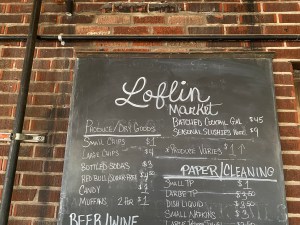 Loflin
MARKET
BATCHED COCKTAIL GAL $45
SEASONAL SLUSHIES $9
PRODUCE/DRY GOODS
SMALL CHIPS $1
LARGE CHIPS $4
BOTTLED SODAS $3
RED BULL (SUGAR FREE)
CANDY $1
MUFFINS 2 FOR $1
* PRODUCE VARIES $1 ↑
PAPER/CLEANING
SMALL TP $1
LARGE TP
DISH LIQUID
SMALL NAPKINS $3
BEER/WINE